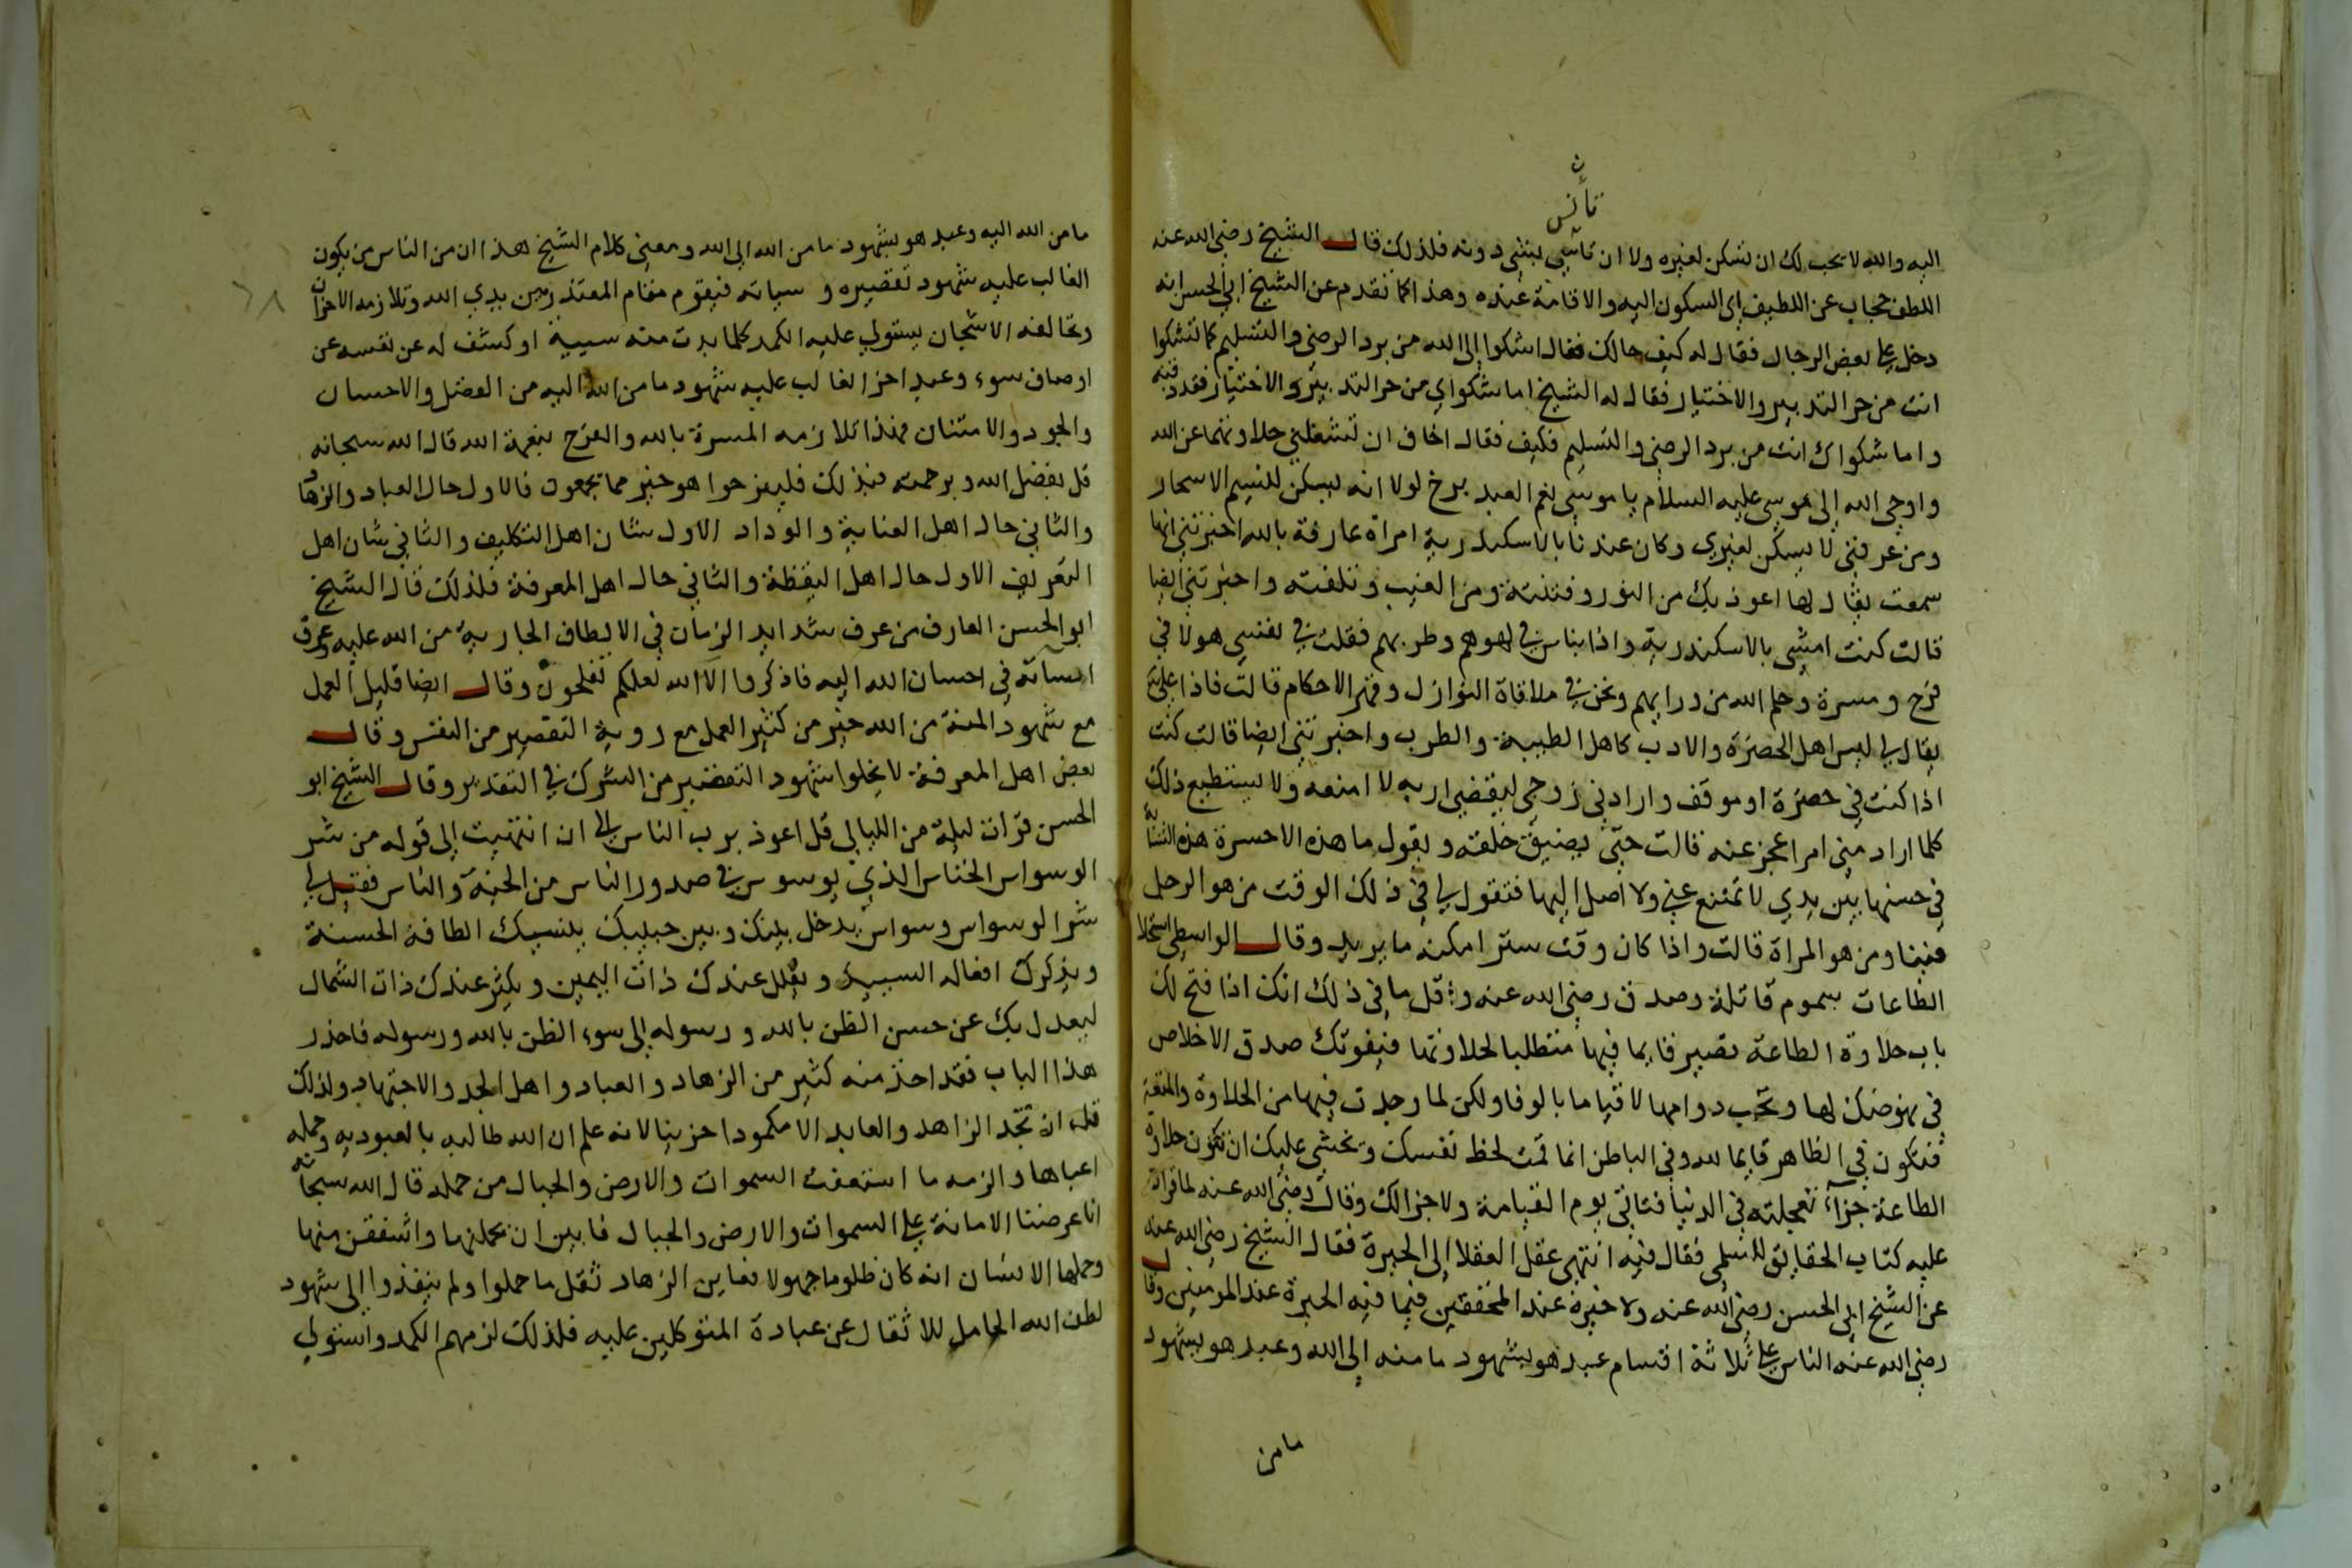 ث
تأنس
اليه والله لا يحب لك ان تسكن لغيره ولا ان تانس بشي دونه فلذلك قال الشيخ رضي الله عنه
اللطف حجاب عن اللطيف اي السكون اليه والاقامة عنده وهذا كما تقدم عن الشيخ ابي الحسن انه
دخل على بعض الرجال فقال له كيف حالك فقال اشكوا الى الله من برد الرضي والتسليم كما تشكوا
انت من حر التدبير والاختيار فقال له الشيخ اما شكواي من حر التدبير والاختيار فقد فيه
واما شكواك انت من برد الرضي والتسليم فكيف فقال اخاف ان تشغلني حلاوتهما عن الله
واوحي الله الى موسى عليه السلام يا موسى نعم العبد برخ لولا انه يسكن لنسيم الاسحار
ومن عرفني لا يسكن لغيري وكان عندنا بالاسكندرية امراة عارفة بالله اخبرتني انها
سمعت يقال لها اعوذ بك من النور وفتنته ومن الغيب وتلفته واخبرتني ايضا
قالت كنت امشي بالاسكندرية واذا بناس في لهوهم وطربهم فقلت في نفسي هولا في
فرح ومسرة وحلم الله من ورايهم ونحن في ملاقاة النوازل وقهر الاحكام قالت فاذا علي
يقال لي ليس اهل الحضرة والادب كاهل الطيبة والطرب واخبرتني ايضا قالت كنت
اذا كنت في حضرة او موقف وارادني زوجي ليقضي اربه لا امنعه ولا يستطيع ذلك
كلما اراد مني امرا عجز عنه قالت حتى يضيق خلقه ويقول ما هذه الا حسرة هذه
في حسنها بين يدي لا تمتنع عني ولا اصل اليها فتقول لي في ذلك الوقت من هو الرجل
فينا ومن هو المراة قالت واذا كان وقت ستر امكنه ما يريد وقال الواسطي استحلا
الطاعات سموم قاتلة وصدق رضي الله عنه واقل ما في ذلك انك اذا فتح لك
باب حلاوة الطاعة تصير قايما فيها متطلبا لحلاوتها فيفوتك صدق الاخلاص
في نهوضك لها وتحب دوامها لا قياما بالوفا ولكن لما وجدت فيها من الحلاوة والمتعة
فتكون في الظاهر قايما لله وفي الباطن انما قمت لحظ نفسك ونخشي عليك ان تكون حلاوة
الطاعة جزاء تعجلته في الدنيا فتاتي يوم القيامة ولا جزا لك وقال رضي الله عنه لما قراة
عليه كتاب الحقايق للسلمي فقال فيه انتهى عقل العقلا الى الحيرة فقال الشيخ رضي الله عنه
عن الشيخ ابي الحسن رضي الله عنه ولا حيرة عند المحققين فيما فيه الحيرة عند المومنين وقال
رضي الله عنه الناس على ثلاثة اقسام عبد هو بشهود ما منه الى الله وعبد هو بشهود
ما من
ما من الله اليه وعبد هو بشهود ما من الله الى الله ومعنى كلام الشيخ هذا ان من الناس من يكون
الغالب عليه شهود تقصيره و سياته فيقوم مقام المعتذر بين بيدي الله وتلازمه الاحزان
وتحالفه الاشجان يستولي عليه الكمد كلما بدت منه سيية او كشف له عن نفسه عن
اوصاف سوء وعبد اخر الغالب عليه شهود ما من الله اليه من الفضل والاحسان
والجود والامتنان فهذا تلازمه المسرة بالله والفرح بنعمة الله قال الله سبحانه
قل بفضل الله وبرحمته فبذلك فليفرحوا هو خير مما يجمعون فالاول حال العباد والزهاد
والثاني حال اهل العناية والوداد الاول شان اهل التكليف والثاني شان اهل
التعريف الاول حال اهل اليقظة والثاني حال اهل المعرفة فلذلك قال الشيخ
ابو الحسن العارف من عرف شدايد الزمان في الالطاف الجارية من الله عليه وعرف
اساته في احسان الله اليه فاذكروا الآ الله لعلكم تفلحون وقال ايضا قليل العمل
مع شهود المنة من الله خير من كثير العمل مع روية التقصير من النفس وقال
بعض اهل المعرفة لا يخلوا شهود التقصير من الشرك في التقدير وقال الشيخ ابو
الحسن قرات ليلة من الليالي قل اعوذ برب الناس الى ان انتهيت الى قوله من شر
الوسواس الخناس الذي يوسوس في صدور الناس من الجنة والناس فقيل لي
شر الوسواس وسواس يدخل بينك وبين حبيبك ينسيك الطافه الحسنة
ويذكرك افعاله السيية ويقلل عندك ذات اليمين ويكثر عندك ذات الشمال
ليعدل بك عن حسن الظن بالله و رسوله الى سوء الظن بالله ورسوله فاحذر
هذا الباب فقد اخذ منه كثير من الزهاد والعباد واهل الجد والاجتهاد ولذلك
قل ان تجد الزاهد والعابد الا مكمودا حزينا لانه علم ان الله طالبه بالعبودية وحمله
اعباها والزمه ما استعفت السموات والارض والجبال من حمله قال الله سبحانه
انا عرضنا الامانة على السموات والارض والجبال فابين ان يحملنها واشفقن منها
وحملها الانسان انه كان ظلوما جهولا فعاين الزهاد ثقل ما حملوا ولم ينفذوا الى شهود
لطف الله الحامل للاثقال عن عبادة المتوكلين عليه فلذلك لزمهم الكمد واستولي
٦٨